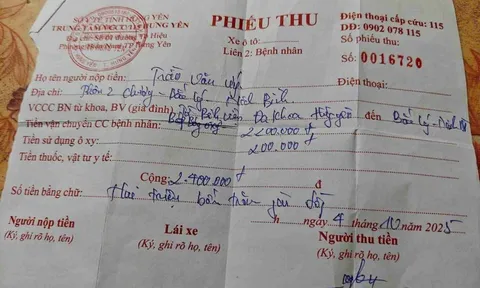 SỞ Y TẾ HƯNG YÊN
TRUNG TÂM VCCC 115 HƯNG YÊN
Địa chỉ: Số 01 đường Tô Hiệu
Phường Hiến Nam, TP Hưng Yên
PHIẾU THU
Xe ô tô:
Liên 2: Bệnh nhân
Điện thoại cấp cứu: 115
DĐ: 0902 078 115
Số phiếu thu:
Số: 0016720
Họ tên người nộp tiền: Trần Văn
Điện thoại:
Địa chỉ: Thôn 2 Lý
VCCC BN từ khoa, BV (gia đình) Bệnh viện Đa khoa đến Lý
Tiền vận chuyển CC bệnh nhân: 2200.000đ
Tiền sử dụng ô xy: 200.000đ
Tiền thuốc, vật tư y tế:
Cộng: 2.400.000đ đ
Số tiền bằng chữ: Hai triệu bốn trăm
h ngày 4 tháng 10 năm 2025
Người nộp tiền
(Ký, ghi rõ họ, tên)
Lái xe
(Ký, ghi rõ họ, tên)
Người thu tiền
(Ký, ghi rõ họ, tên)